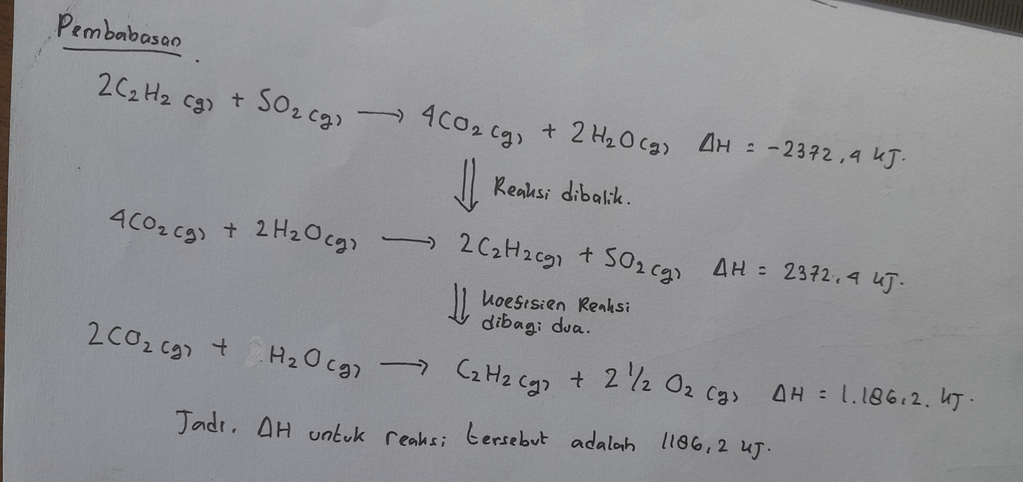 Pembabasan.
2C₂H₂ (g) + 5O₂ (g) → 4CO₂ (g) + 2H₂O (g) ΔH = -2372,4 kJ.
⇓ Reaksi dibalik.
4CO₂ (g) + 2H₂O (g) → 2C₂H₂ (g) + 5O₂ (g) ΔH = 2372,4 kJ.
⇓ Koefisien Reaksi
dibagi dua.
2CO₂ (g) + H₂O (g) → C₂H₂ (g) + 2 1/2 O₂ (g) ΔH = 1.186,2. kJ.
Jadi, ΔH untuk reaksi tersebut adalah 1186,2 kJ.